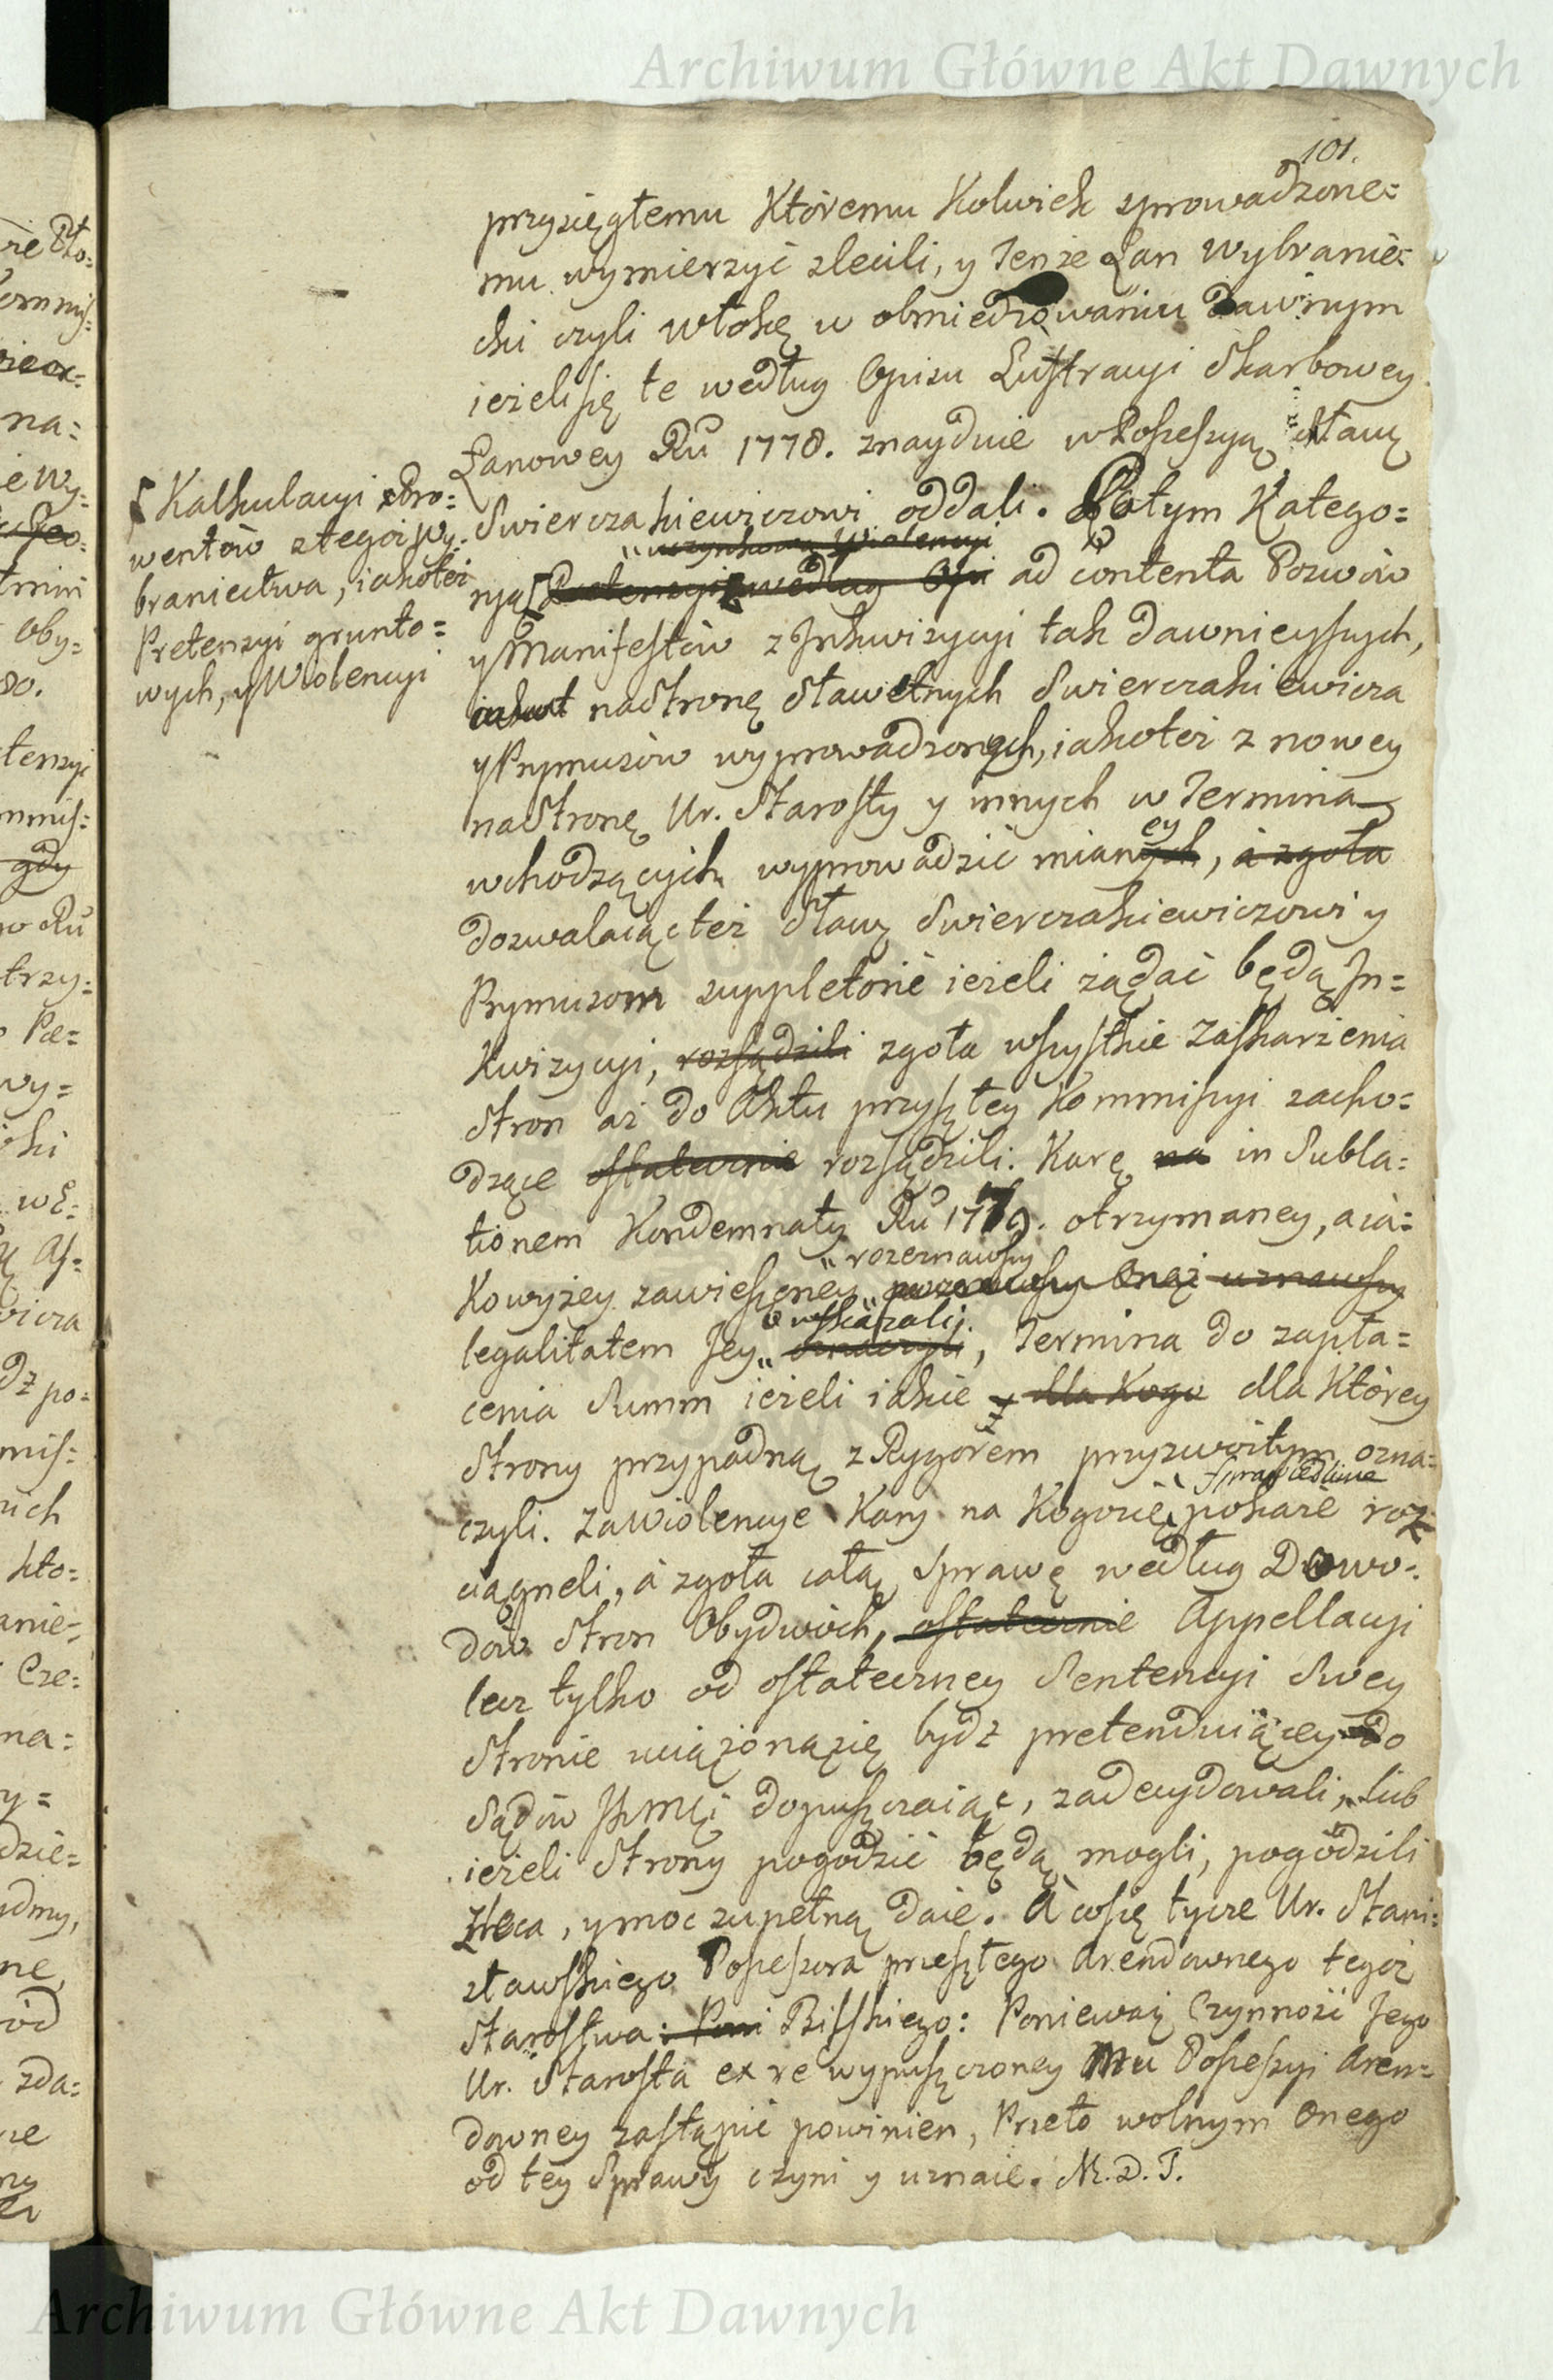 Archiwum Główne Akt Dawnych
101.
przysięgłemu Któremu Kolwiek sprowadzone=
mu wymierzyć zlecili, y Tenże Łan Wybranie=
cki czyli Włokę w obmiedzowaniu dawnym
ieżeli się te według Opisu Lustracyi Skarbowey
Łanowey Ru 1778. znaydzie w Possessyą Sławę
Swierczakiewiczowi oddali. Potym Katego=
ryą ad contenta Pozwów
y Manifestów z Inkwizycyi tak dawnieyszych,
na Stronę Sławetnych Swierczakiewicza
y Prymusów wyprowadzonych, iakoteż z nowey
na Stronę Ur. Starosty y innych w Termina
wchodzących wyprowadzić mianey, a zgoła
dozwalaiąc też Sławę Swierczakiewiczowi y
Prymusom suppletorie ieżeli żądać będą In=
kwizycyi, rozsądzili zgoła wszystkie Zaskarżenia
Stron aż do Aktu przyszłey Kommissyi zacho=
dzące ostatecznie rozsądzili. Karę na in Subla=
tionem Kondemnaty Ru 1779. otrzymaney, a ia=
Ko wyżey zawieszoney rozeznawszy Onęż uznawszy
legalitatem Jey wskazali, Termina do zapła=
cenia Summ ieżeli iakie dla Kogo dla Którey
Strony przypadną z Rygorem przyzwoitym ozna=
czyli. Za Wiolencye Kary na Kogo się sprawiedliwie pokaże roz=
ciągneli, à zgoła całą Sprawę według Dowo=
dów Stron Obydwóch, ostatecznie Appellacyi
lecz tylko od ostateczney Sentencyi Swey
Stronie uciążoną się bydź pretenduiącey do
Sądów JKMCi dopuszczaiąc, zadecydowali, lub
ieżeli Strony pogodzić będą mogli, pogodzili
zleca, y moc zupełną daie. A co się tycze Ur. Stani=
sławskiego Possessora przeszłego Arendownego tegoż
Starostwa: Pilskiego: Ponieważ Czynność Jego
Ur. Starosta ex re wypuszczoney Mu Possessyi Aren=
downey zastąpić powinien, Przeto wolnym Onego
od tey Sprawy czyni y uznaie. M.D.T.
Kalkulacyi z Pro=
wentów z tegoż Wy=
braniectwa, iakoteż
Pretensyi grunto=
wych, y Wiolencyi
Archiwum Główne Akt Dawnych